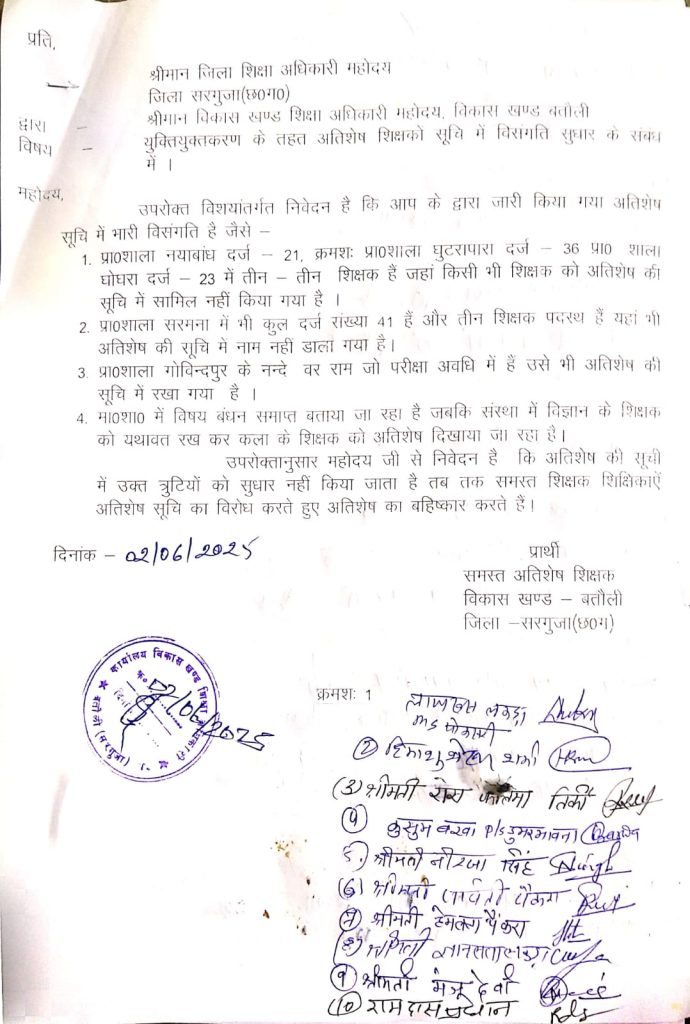 प्रति,
श्रीमान जिला शिक्षा अधिकारी महोदय
जिला सरगुजा(छ0ग0)
द्वारा – श्रीमान विकास खण्ड शिक्षा अधिकारी महोदय, विकास खण्ड बतौली
विषय – युक्तियुक्तकरण के तहत अतिशेष शिक्षको सूचि में विसंगति सुधार के संबध
में ।
महोदय,
उपरोक्त विशयांतर्गत निवेदन है कि आप के द्वारा जारी किया गया अतिशेष
सूचि में भारी विसंगति है जैसे –
1. प्रा0शाला नयाबांध दर्ज – 21, क्रमशः प्रा0शाला घुटरापारा दर्ज – 36 प्रा0 शाला
घोघरा दर्ज – 23 में तीन – तीन शिक्षक हैं जहां किसी भी शिक्षक को अतिशेष की
सूचि में सामिल नहीं किया गया है ।
2. प्रा0शाला सरमना में भी कुल दर्ज संख्या 41 हैं और तीन शिक्षक पदस्थ हैं यहां भी
अतिशेष की सूचि मे नाम नहीं डाला गया है।
3. प्रा0शाला गोविन्दपुर के नन्दे वर राम जो परीक्षा अवधि में हैं उसे भी अतिशेष की
सूचि में रखा गया है ।
4. मा0शा0 में विषय बंधन समाप्त बताया जा रहा है जबकि संस्था में विज्ञान के शिक्षक
को यथावत रख कर कला के शिक्षक को अतिशेष दिखाया जा रहा है।
उपरोक्तानुसार महोदय जी से निवेदन है कि अतिशेष की सूची
में उक्त त्रुटियों को सुधार नहीं किया जाता है तब तक समस्त शिक्षक शिक्षिकाऐं
अतिशेष सूचि का विरोध करते हुए अतिशेष का बहिष्कार करते हैं।
दिनांक – 02/06/2025
प्रार्थी
समस्त अतिशेष शिक्षक
विकास खण्ड – बतौली
जिला –सरगुजा(छ0ग)
कार्यालय विकास खण्ड शिक्षा अधिकारी
बतौली (सरगुजा)
02/06/2025
क्रमशः 1
लकड़ा
ms
(2)
(3) श्रीमती रोस फातिमा तिर्की
(4) कुसुम p/s डुमरभावना
5. श्रीमती नीरजा सिंह
(6) श्रीमती पार्वती पैंकरा
(7) श्रीमती पैंकरा
(8) श्रीमती
(9) श्रीमती मंजू देवी
(10) रामदास प्रधान